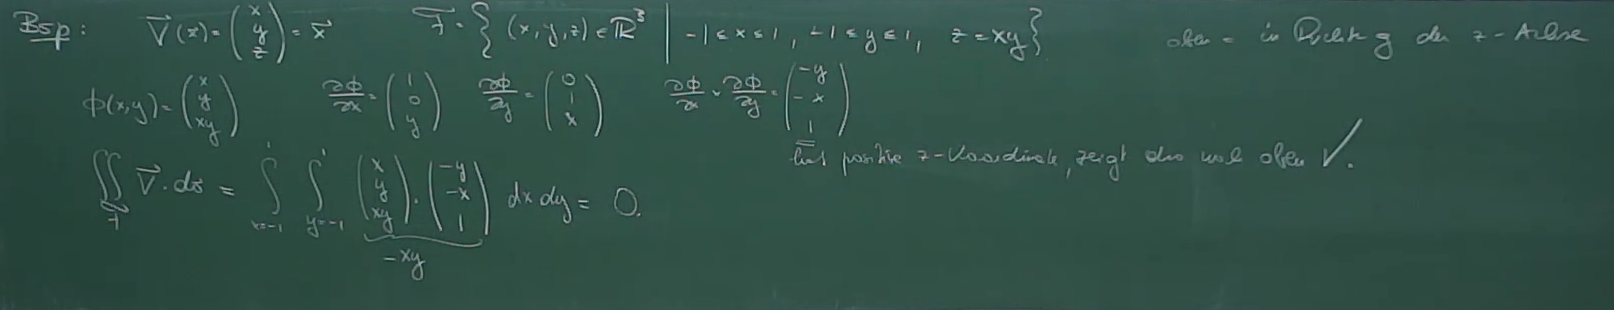 Bsp: V⃗(x⃗) = (x y z) = x⃗   F = { (x, y, z) ∈ ℝ³ | -1 ≤ x ≤ 1, -1 ≤ y ≤ 1, z = xy }   oben = in Richtung der z-Achse
ϕ(x,y) = (x y xy)   ∂ϕ/∂x = (1 0 y)   ∂ϕ/∂y = (0 1 x)   ∂ϕ/∂x × ∂ϕ/∂y = (-y -x 1)
hat positive z-Koordinate, zeigt also nach oben ✓.
∬_F V⃗ · do⃗ = ∫_{x=-1}^{1} ∫_{y=-1}^{1} (x y xy) · (-y -x 1) dx dy = 0.
-xy